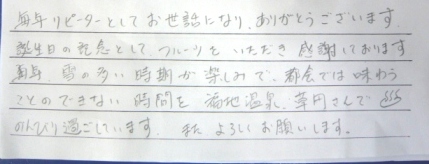 毎年リピーターとしてお世話になり、ありがとうございます
誕生日の記念として、フルーツをいただき感謝しております
毎年、雪の多い時期が楽しみで、都会では味わう
ことのできない時間を福地温泉、草円さんで♨
のんびり過ごしています。またよろしくお願いします。